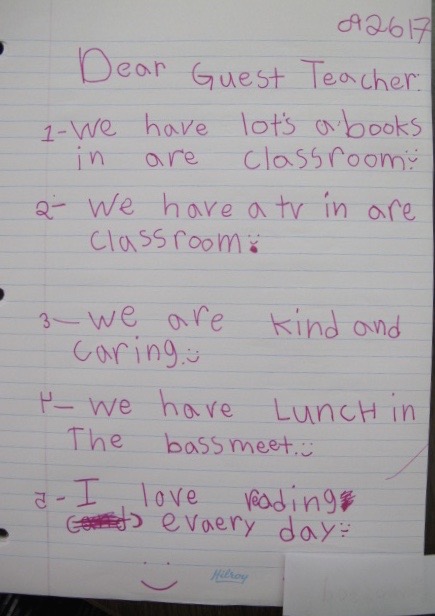 092617
Dear Guest Teacher:
1- We have lot's a books
in are classroom
2- We have a tv in are
classroom.
3- we are kind and
caring.
4- we have LUNCH in
The bassmeet.
5- I love reading
evaery day
Hilroy